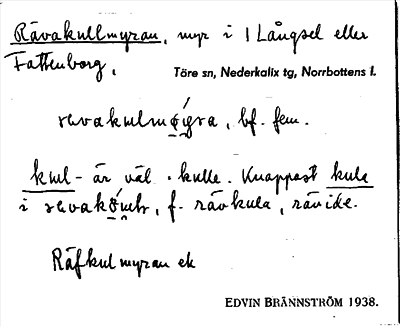 Rävakullmyran, myr i 1 Långsel eller
Fattenborg,
Töre sn, Nederkalix tg, Norrbottens l.
bf. fem.
kul- är väl = kulle. Knappast kula
i f. rävkula, rävide.
Räfkulmyran ek
EDVIN BRÄNNSTRÖM 1938.